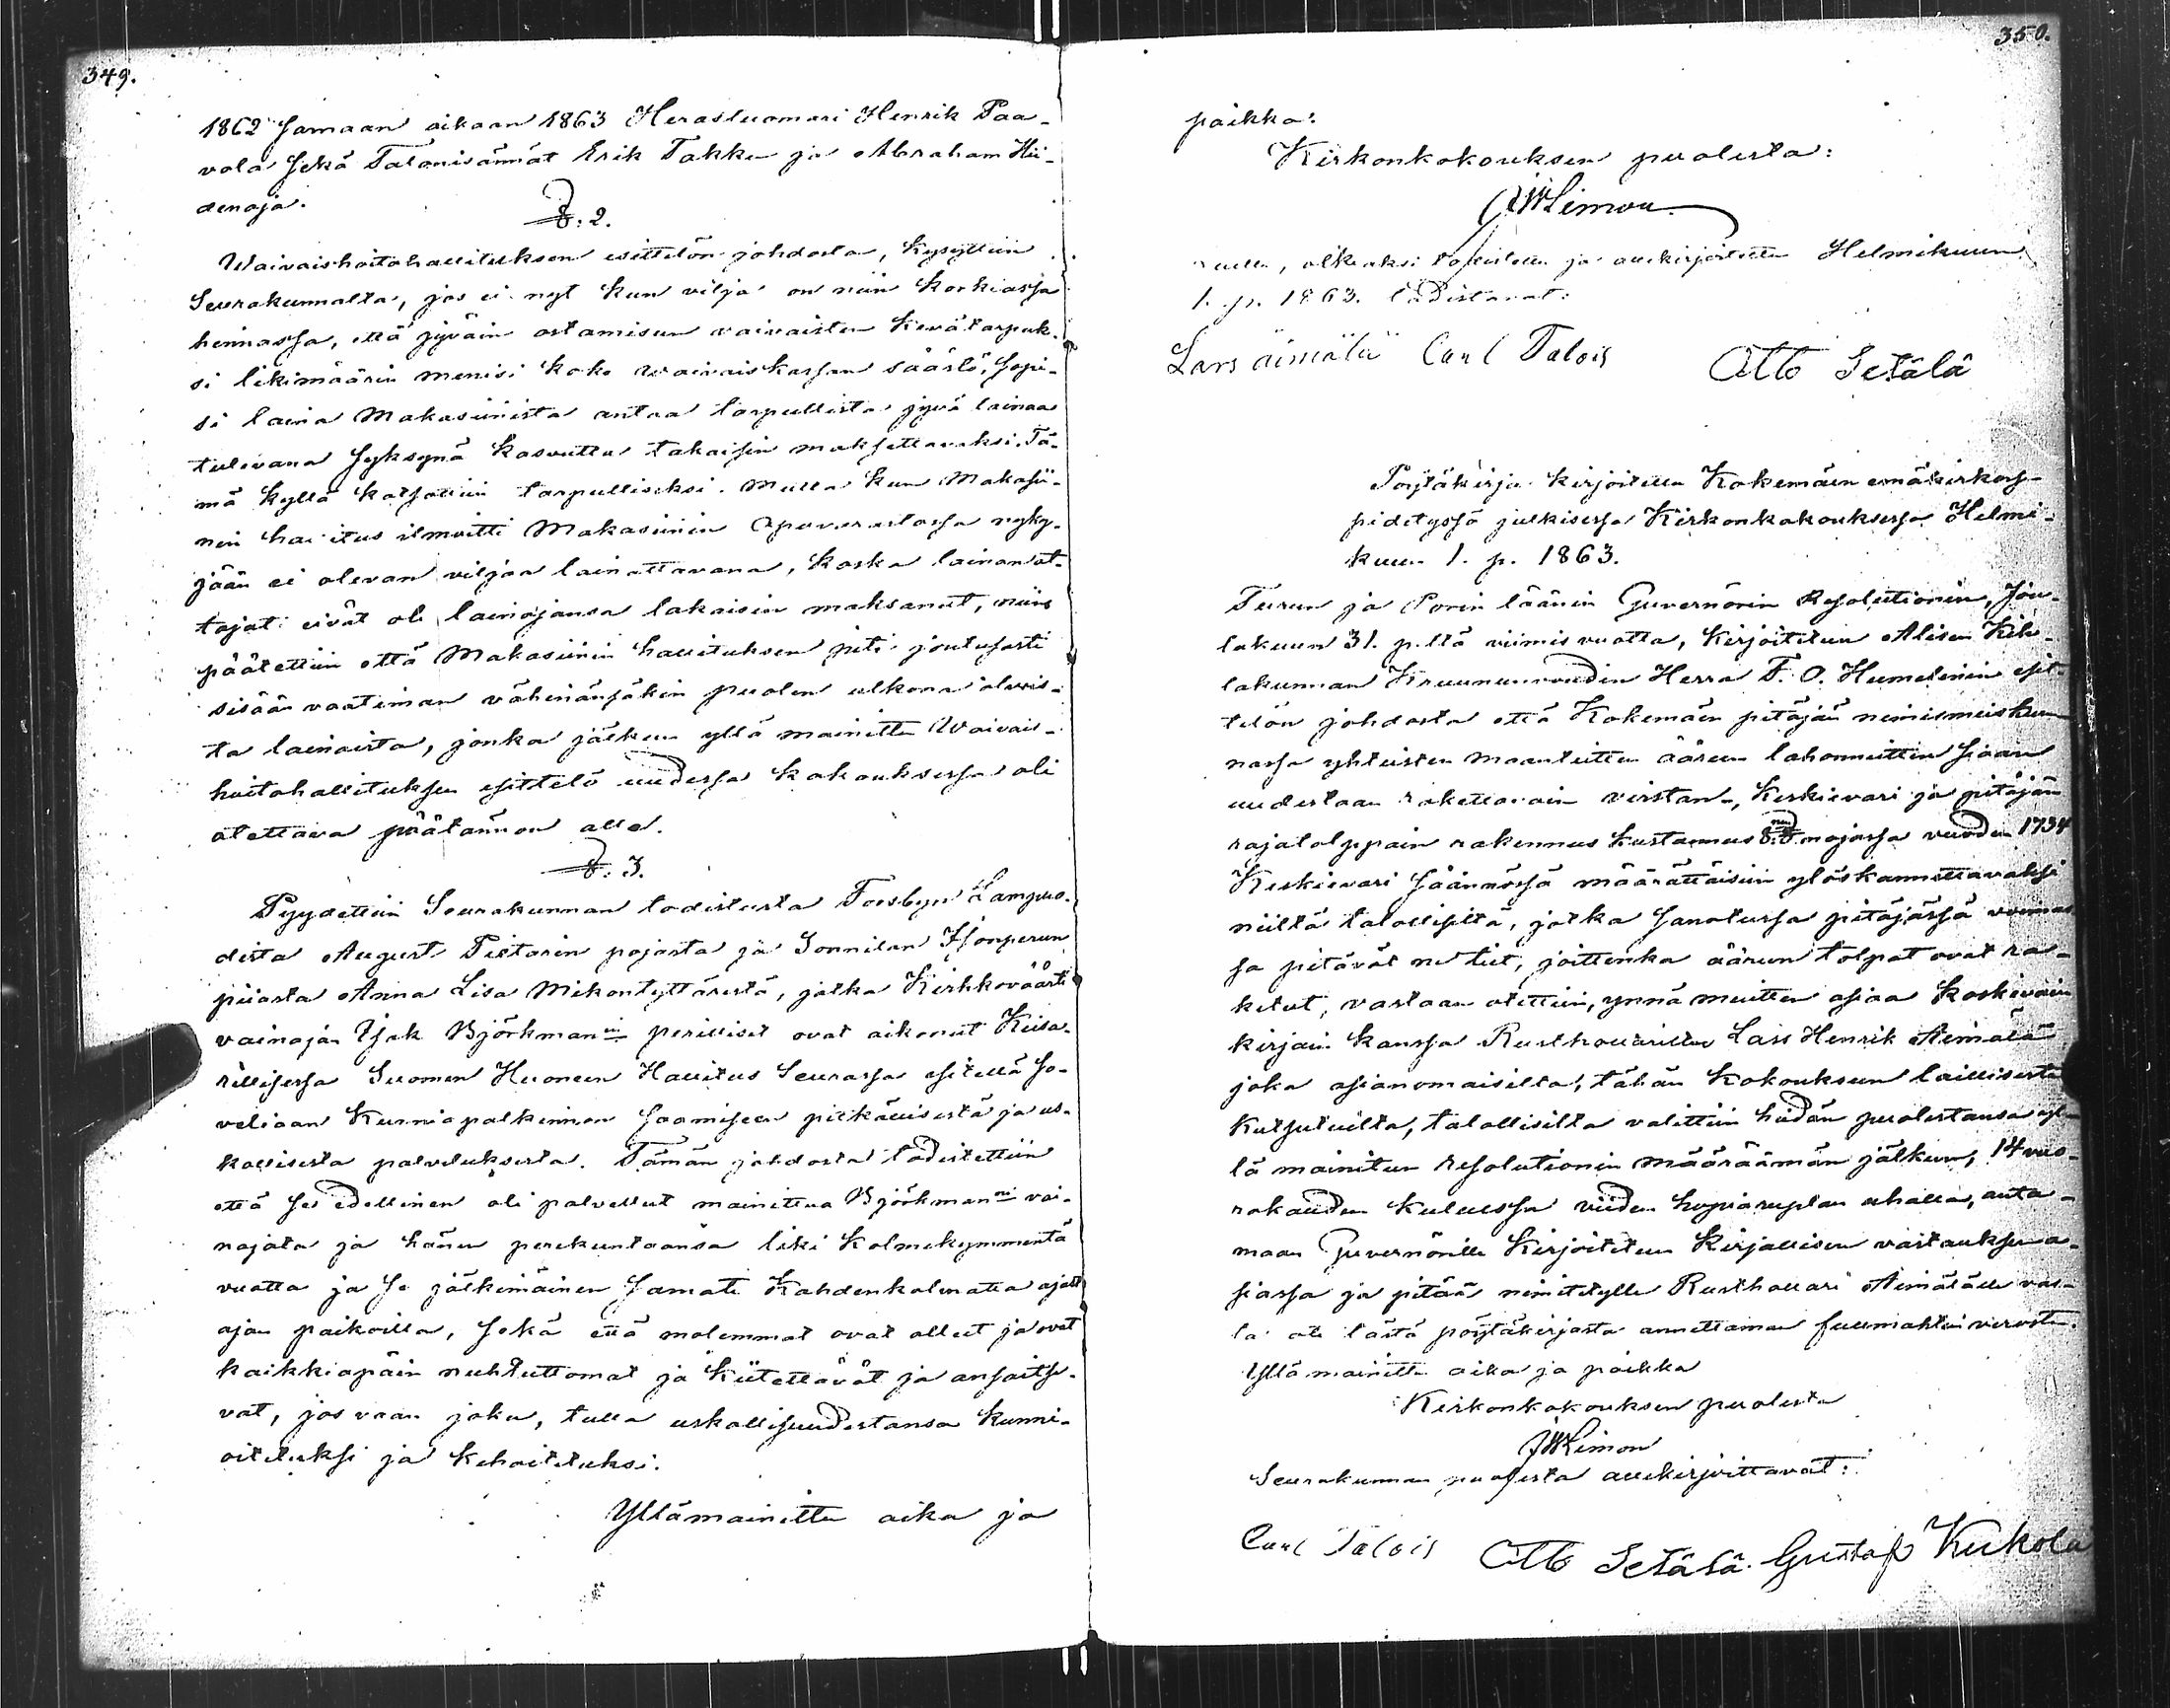 349.
1862 samaan aikaan 1863 Herastuomari Henrik Paa-
vola sekä Talonisännät Erik Takku ja Abraham Hii-
denoja.
§. 2.
Waivaishoitohallituksen esittelön johdosta, kysyttiin
Seurakunnalta, jos ei nyt kun vilja on niin korkiassa
hinnassa, että jyväin ostamiseen vaivaisten kevätarpuk-
si likimäärin menisi koko waivaiskassan säästö, sopi-
si laina Makasiinista antaa tarpullista jyvä lainaa
tulevana syksynä kasvutta takaisin maksettavaksi. Tä-
mä kyllä katsottiin tarpulliseksi. Mutta kun Makasii-
nin hallitus ilmoitti Makasiinin Apuvarastossa nyky-
jään ei olevan viljaa lainattavana, koska lainanot-
tajat eivät ole lainojansa takaisin maksanut, niin
päätettiin että Makasiinin hallituksen piti joutusasti
sisään vaatiman vähinänsäkin puolen ulkona olevis-
ta lainoista, jonka jälkeen yllä mainittu Waivais-
hoitohallituksen esittelö uudessa kokouksessa oli
otettava päätännön alle.
§. 3.
Pyydettiin Seurakunnan todistusta Forsbyn Lampuo-
dista August Tistarin pojasta ja Sonnilan Isonperun
piiasta Anna Lisa Mikontyttärestä, jotka Kirkkoväärti
vainajan Isak Björkmanin perilliset ovat aikonut Keisa-
rillisessa Suomen Huoneen Hallitus Seurassa esitellä so-
veliaan kunniapalkinnon saamiseen pitkällisestä ja us-
kollisesta palveluksesta. Tämän johdosta todistettiin
että se edellinen oli palvellut mainittua Björkmanni vai-
najata ja hänen perekuntaansa liki kolmekymmentä
vuotta ja se jälkimäinen samati kahdenkolmatta ajast
ajan paikoilla, sekä että molemmat ovat olleet ja ovat
kaikkiapäin nuhtuttomat ja kiitettävät ja ansaitse-
vat, jos vaan joku, tulla uskollisuudestansa kunni-
oitetuksi ja kehoitetuksi.
Yllämainittu aika ja
350.
paikka:
Kirkonkokouksen puolesta:
JWLimon
luettu, oikeaksi tunnustettu ja allekirjoitettu Helmikuun
1. p. 1863. todistavat:
Lars äimälä Carl Talois Otto Setälä
Pöytäkirja kirjoitettu Kokemäen emäkirkoss
pidetyssä julkisessa Kirkonkokouksessa Helmi-
kuun 1. p. 1863.
Turun ja Porin läänin Guvernörin Resolutionin, Jou-
lukuun 31. p:ltä viimis vuotta, kirjoitetun Alisen Kih-
lakunnan Kruununvoudin Herra F. O. Humelinin esit-
telön johdosta että Kokemäen pitäjän nimismieskun
nassa yhteisten maanteitten ääreen lahonneitten siaan
uudestaan rakettavain virstan-, Keskievari ja pitäjän
rajatolppain rakennus kustannus 8:§ nojassa vuoden 1734
Keskievari säännössä määrättäisiin ylöskannettavaksi
niiltä talollisilta, jotka sanotussa pitäjässä voimas
sa pitävät ne tiet, joittenka ääreen tolpat ovat ra-
ketut, vastaan otettiin, ynnä muitten asiaa koskevain
kirjain kanssa Rusthollarilta Lars Henrik Äimälä
joka asianomaisilta, tähän kokoukseen laillisesti
kutsutuilta, talollisilta valittiin heidän puolestansa yl-
lä mainitun resolutionin määräämän jälkeen, 14 vuo-
rokauden kuluessa viiden hopiaruplan uhalla, anta-
maan Guvernörille kirjoitetun kirjallisen vastauksen a-
siassa ja pitää nimitetylle Rusthollari Äimälälle vas-
ta ote tästä pöytäkirjasta annettaman fullmahtin verosta.
Yllä mainittu aika ja paikka
Kirkonkokouksen puolesta
JWLimon
Seurakunnan puolesta allekirjoittavat:
Carl Talois Otto Setälä. Gustaf Kukola